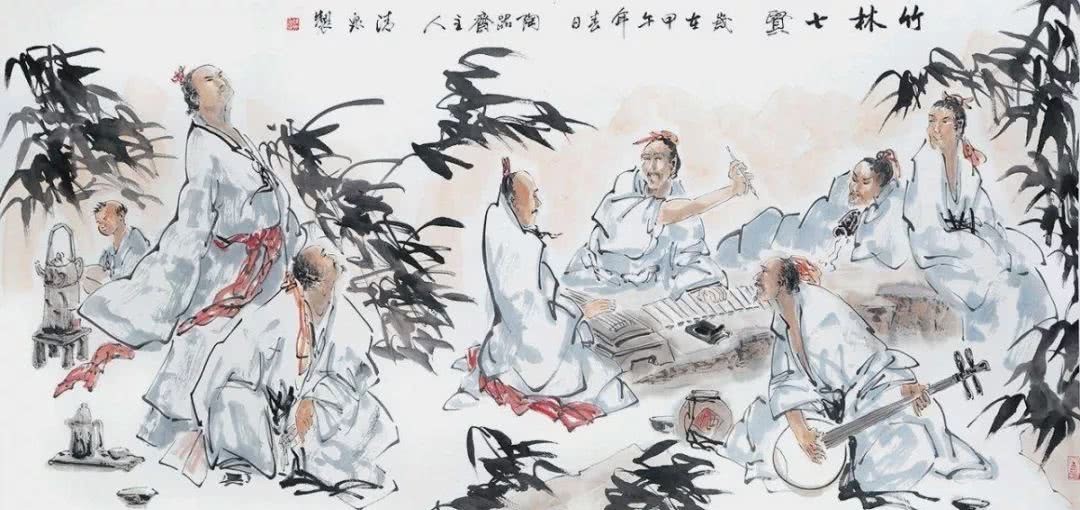 竹林七賢 歲在甲午年春日 陶器齋主人 清泉製